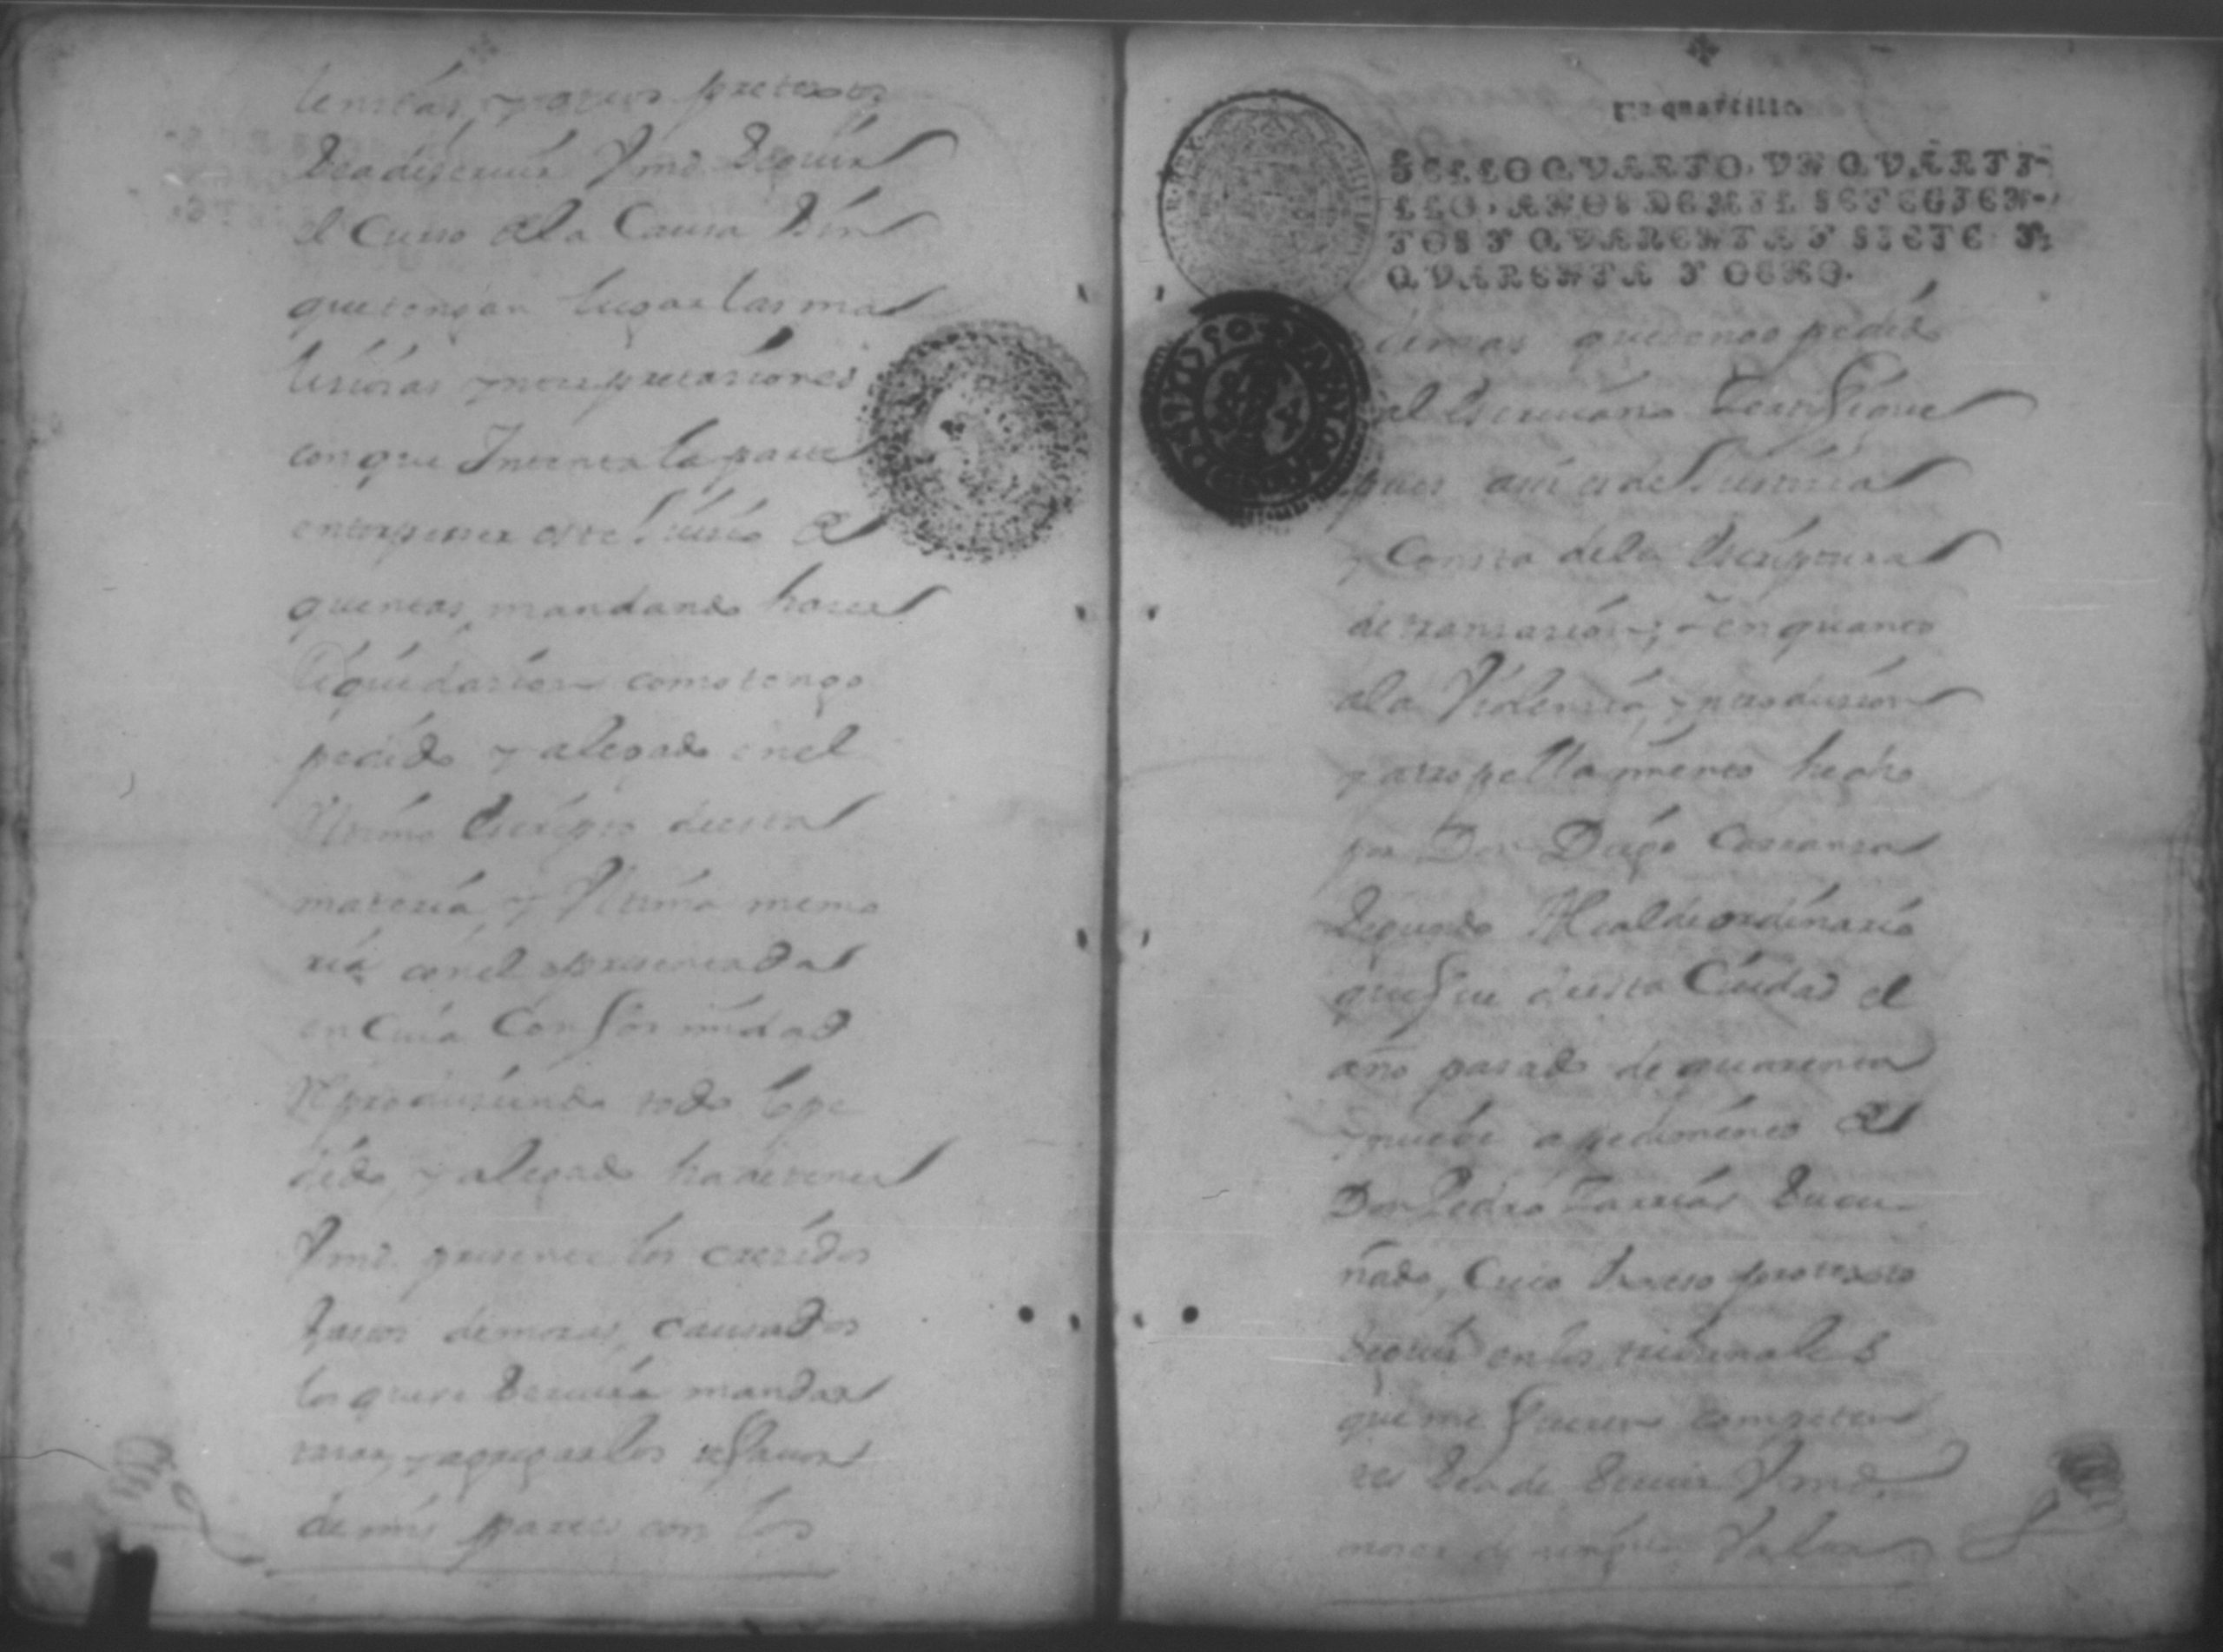 lencias, y otros pretextos
sea de servir Vmd. seguir
el curso a la Causa sin
que tengan lugar las ma
liciosas
con que Intenta la parte
entorpecer este Juicio de
quentas, mandando hacer
liquidacion como tengo
pedido y alegado en el
Ultimo Escripto de esta
materia, y Ultima memo
ria con el presentada
en Cuia Conformidad
Reproduciendo todo lo pe
dido, y alegado ha de tener
Vmd. presente los crecidos
gastos demoras, causados
los que se servirá mandar
tasar, y agregarlos a favor
de mis partes con los
Un quartillo.
SELLO QVARTO, VN QVARTI-
LLO, AÑOS DE MIL SETECIEN-
TOS Y QVARENTA Y SIETE Y
QVARENTA Y OCHO.
demas que tengo pedido
al Escrivano
pues asi es de Justicia
y Consta de la Escriptura
de transaccion; y en quanto
a la Violencia, y
y atropellamiento hecho
por Don Diego Carranza
segundo Alcalde ordinario
que fue de esta Ciudad el
año pasado de quarenta
y nueve a pedimento de
Don Pedro Farias su cu-
ñado, Cuio exceso protexto
seguir en los tribunales
que me fueren competen
tes sea de servir Vmd.
Valor